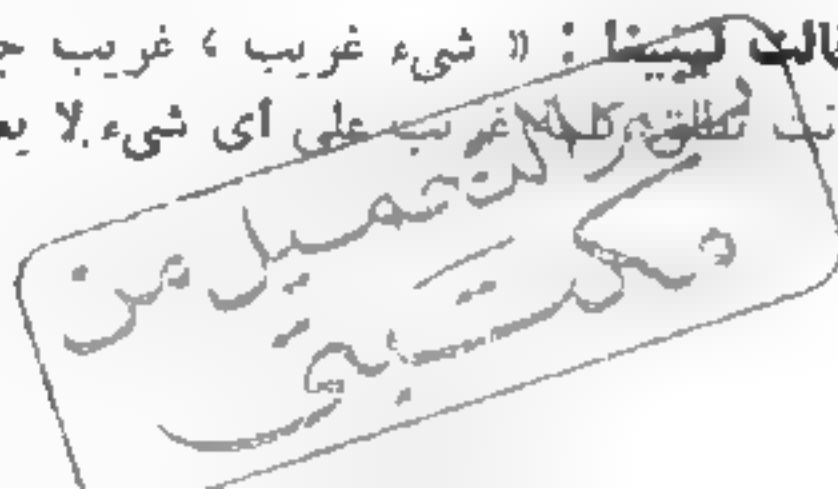 قالت ليبينا : « شيء غريب ، غريب
تطلق كلمة غريب على أى شيء لا
التحميل من
مكتبتي